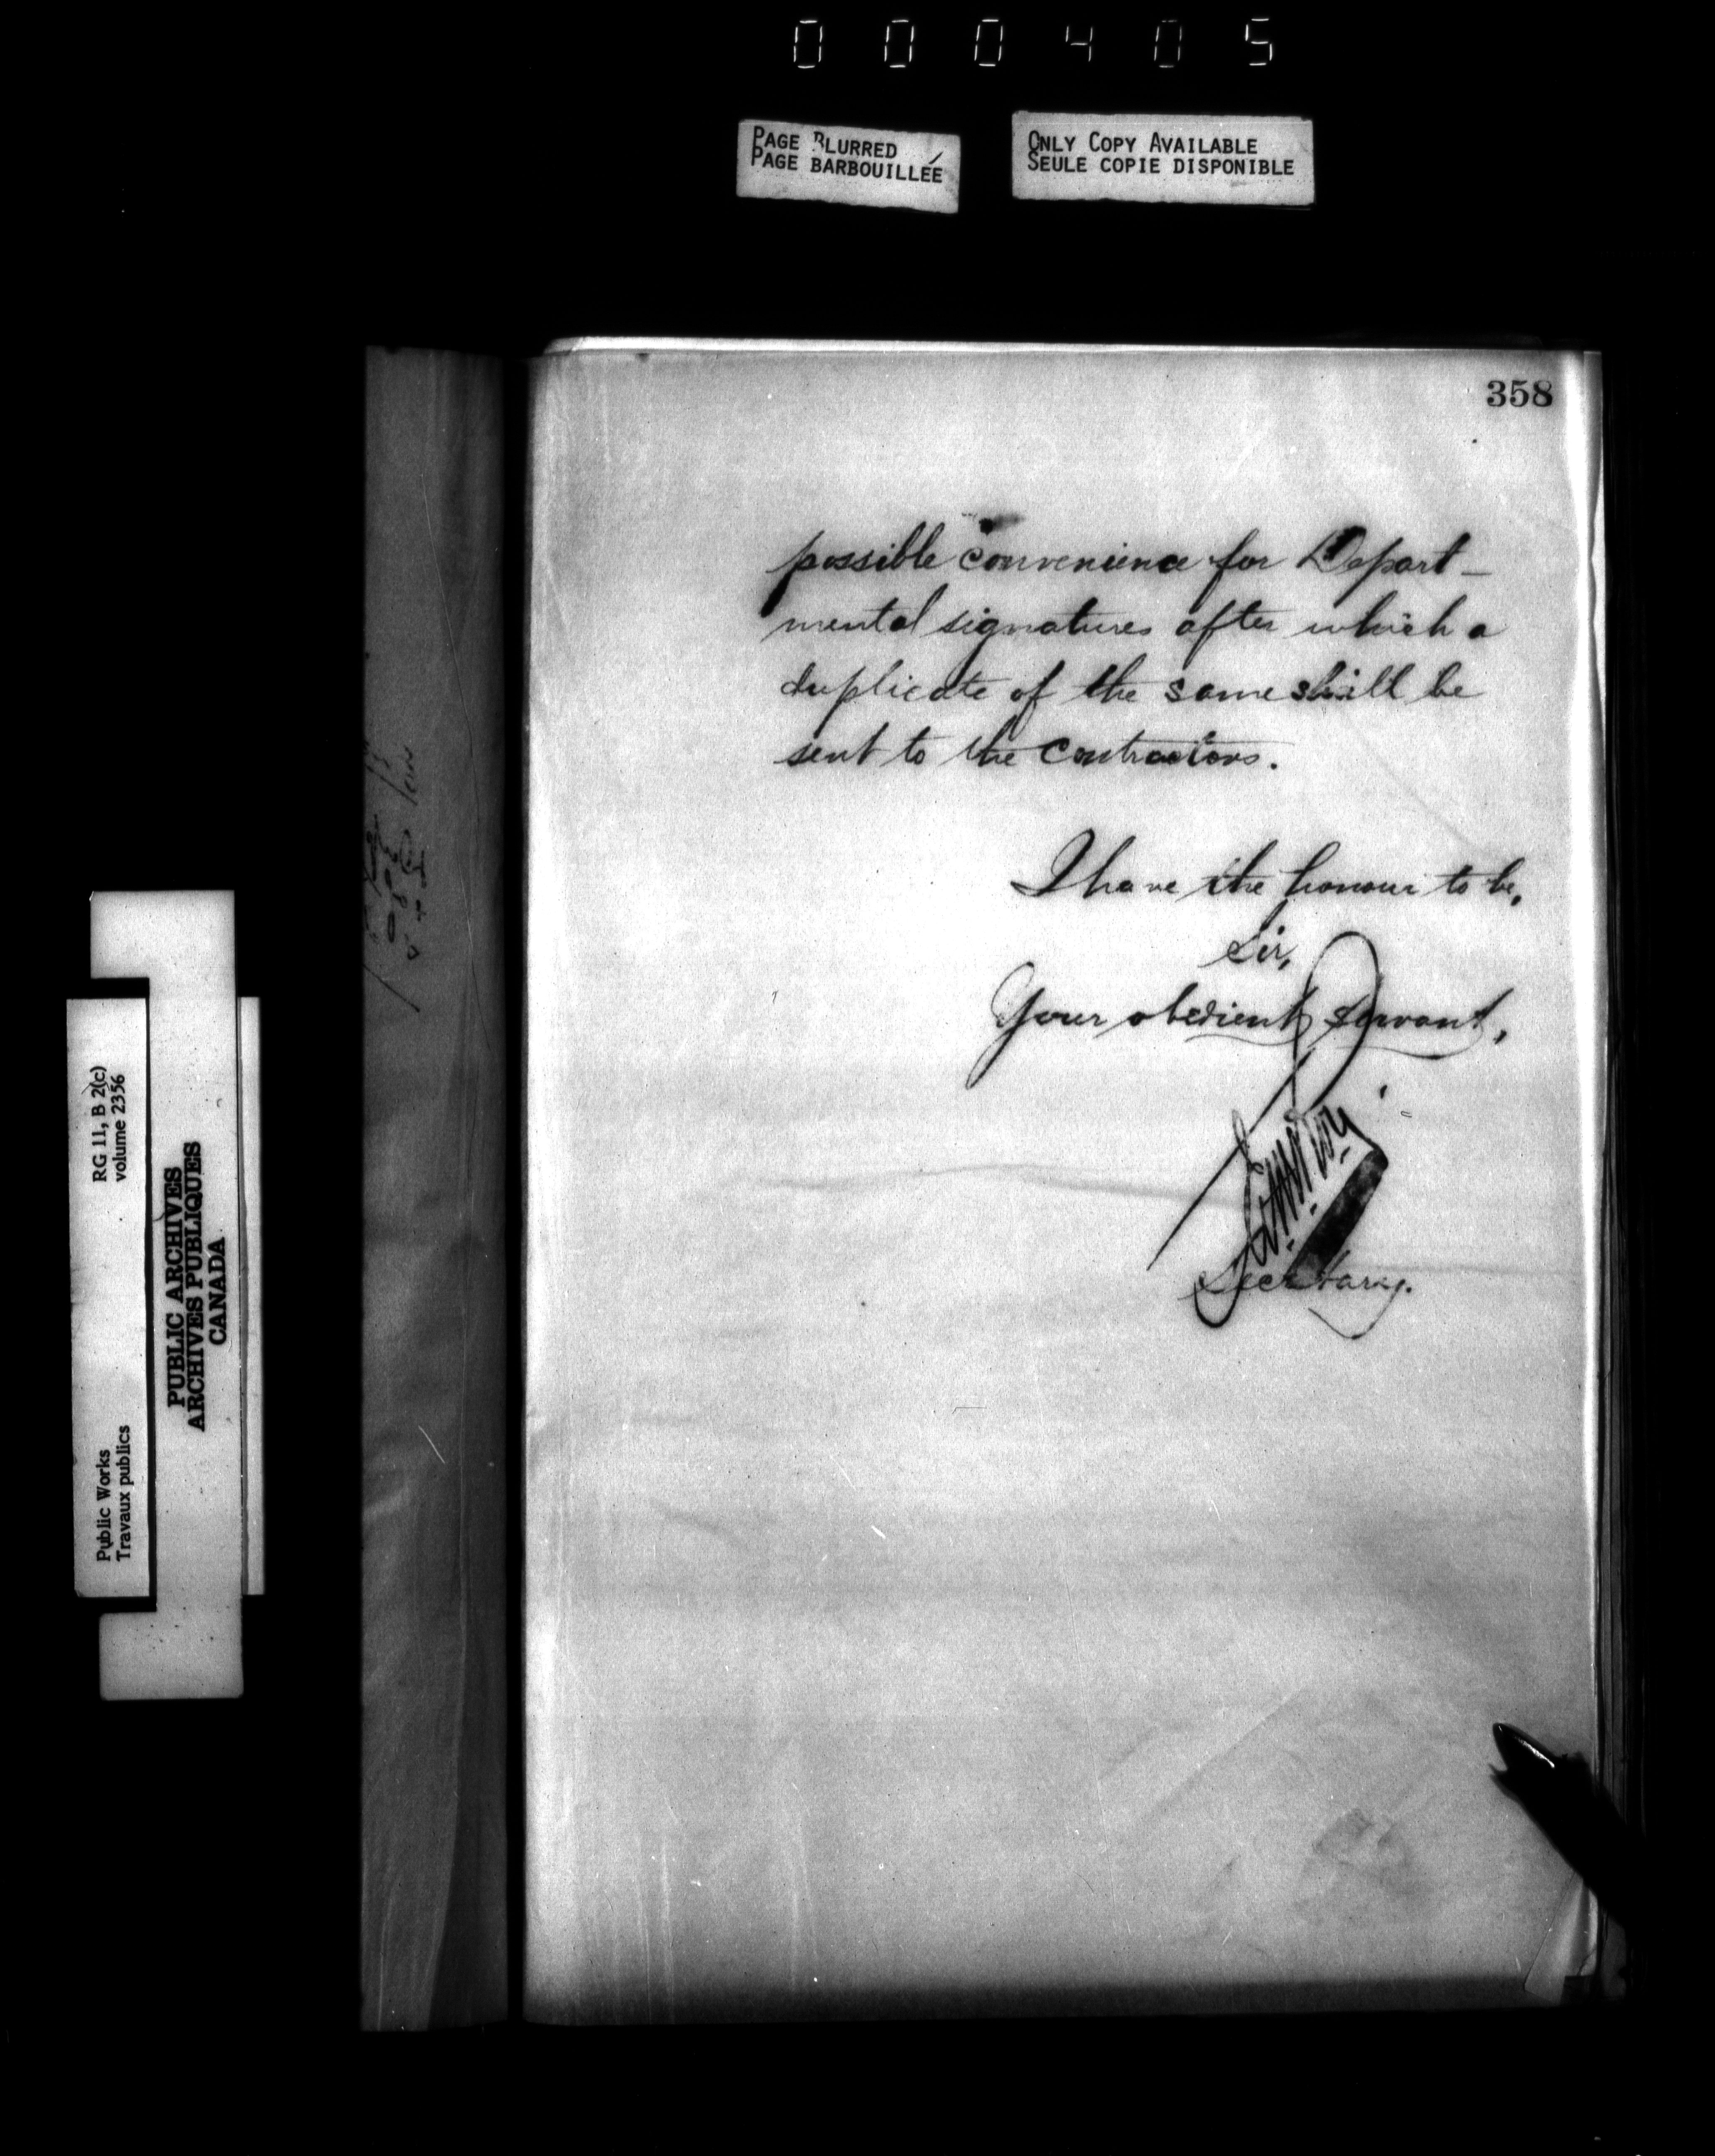 000405
PAGE BLURRED
PAGE BARBOUILLÉE
ONLY COPY AVAILABLE
SEULE COPIE DISPONIBLE
358
possible convenience for Depart-
mental signatures after which a
duplicate of the same shall be
sent to the Contractors.
I have the honour to be,
Sir,
Your obedient servant,
Secretary.
RG 11, B 2(c)
volume 2356
Public Works
Travaux publics
PUBLIC ARCHIVES
ARCHIVES PUBLIQUES
CANADA